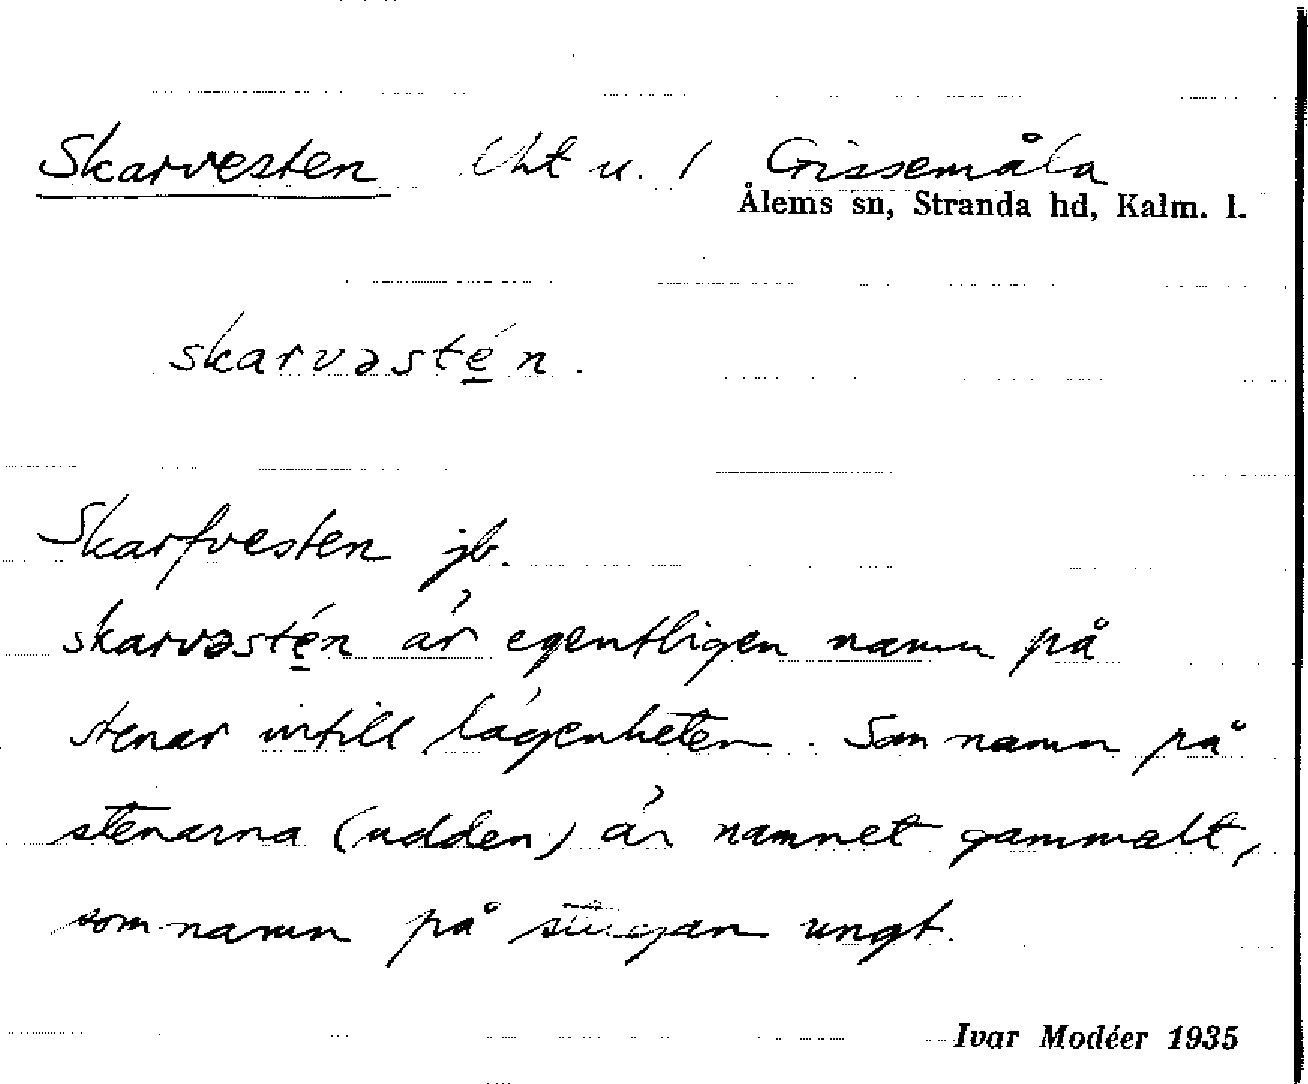 Skarvesten lht u. 1 Grissemåla
Ålems sn, Stranda hd, Kalm. l.
skarvəsté̱n.
Skarfvesten jb.
skarvəsté̱n är egentligen namn på
stenar intill lägenheten. Som namn på
stenarna (udden) är namnet gammalt,
som namn på stugan ungt.
Ivar Modéer 1935